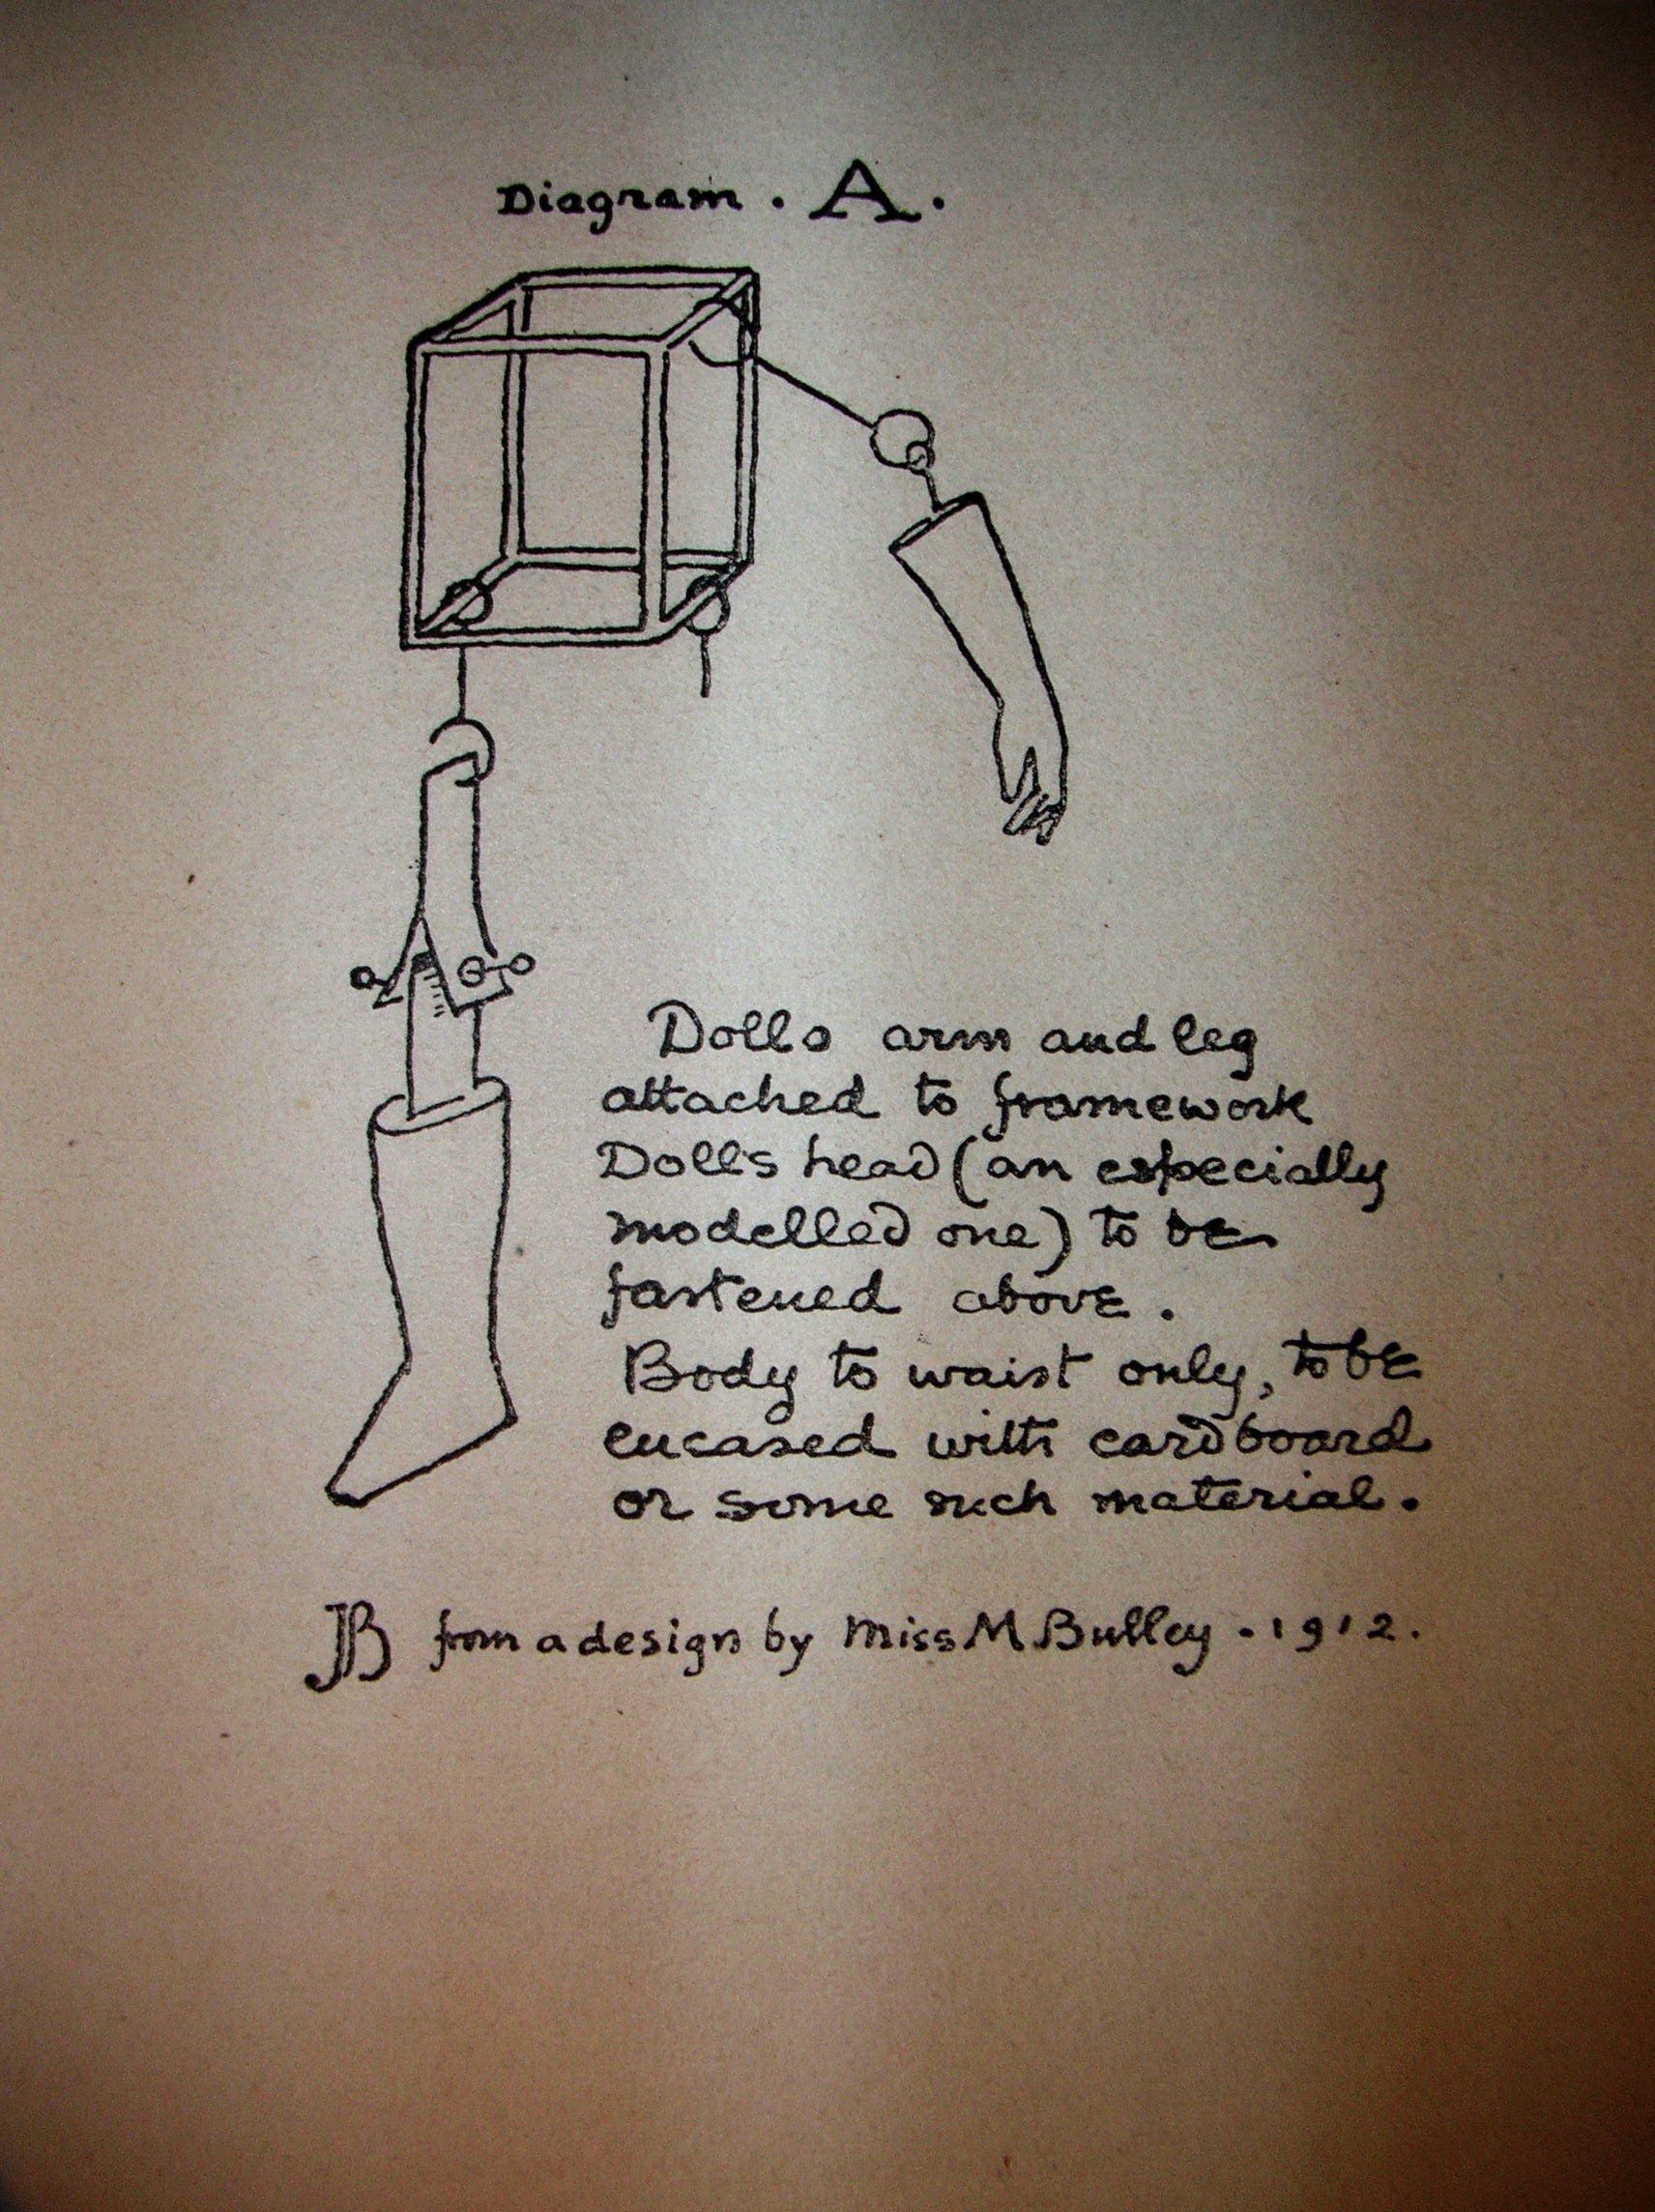 Diagram. A.
Dolls arm and leg
attached to framework
Dolls head (an especially
modelled one) to be
fastened above.
Body to waist only, to be
encased with cardboard
or some such material.
JB from a design by Miss M Bulley - 1912.